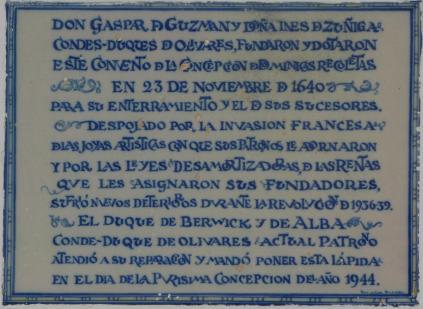 DON GASPAR D GUZMAN Y DOÑA INES D ZUÑIGA
CONDES-DUQUES D OLIVARES, FUNDARON Y DOTARON
ESTE CONVENTO D LA CONCEPCION D DOMINICAS RECOLETAS
EN 23 DE NOVIEMBRE D 1640
PARA SU ENTERRAMIENTO Y EL D SUS SUCESORES.
DESPOJADO POR LA INVASION FRANCESA
D LAS JOYAS ARTISTICAS CON QUE SUS PATRONOS LE ADORNARON
Y POR LAS LEYES DESAMORTIZADORAS, D LAS RENTAS
QUE LES ASIGNARON SUS FUNDADORES,
SUFRIO NUEVOS DETERIOROS DURANTE LA REVOLUCION D 1936-39.
EL DUQUE DE BERWICK Y DE ALBA
CONDE-DUQUE DE OLIVARES ACTUAL PATRONO
ATENDIÓ A SU REPARACION Y MANDÓ PONER ESTA LÁPIDA
EN EL DIA DE LA PURISIMA CONCEPCION DEL AÑO 1944.